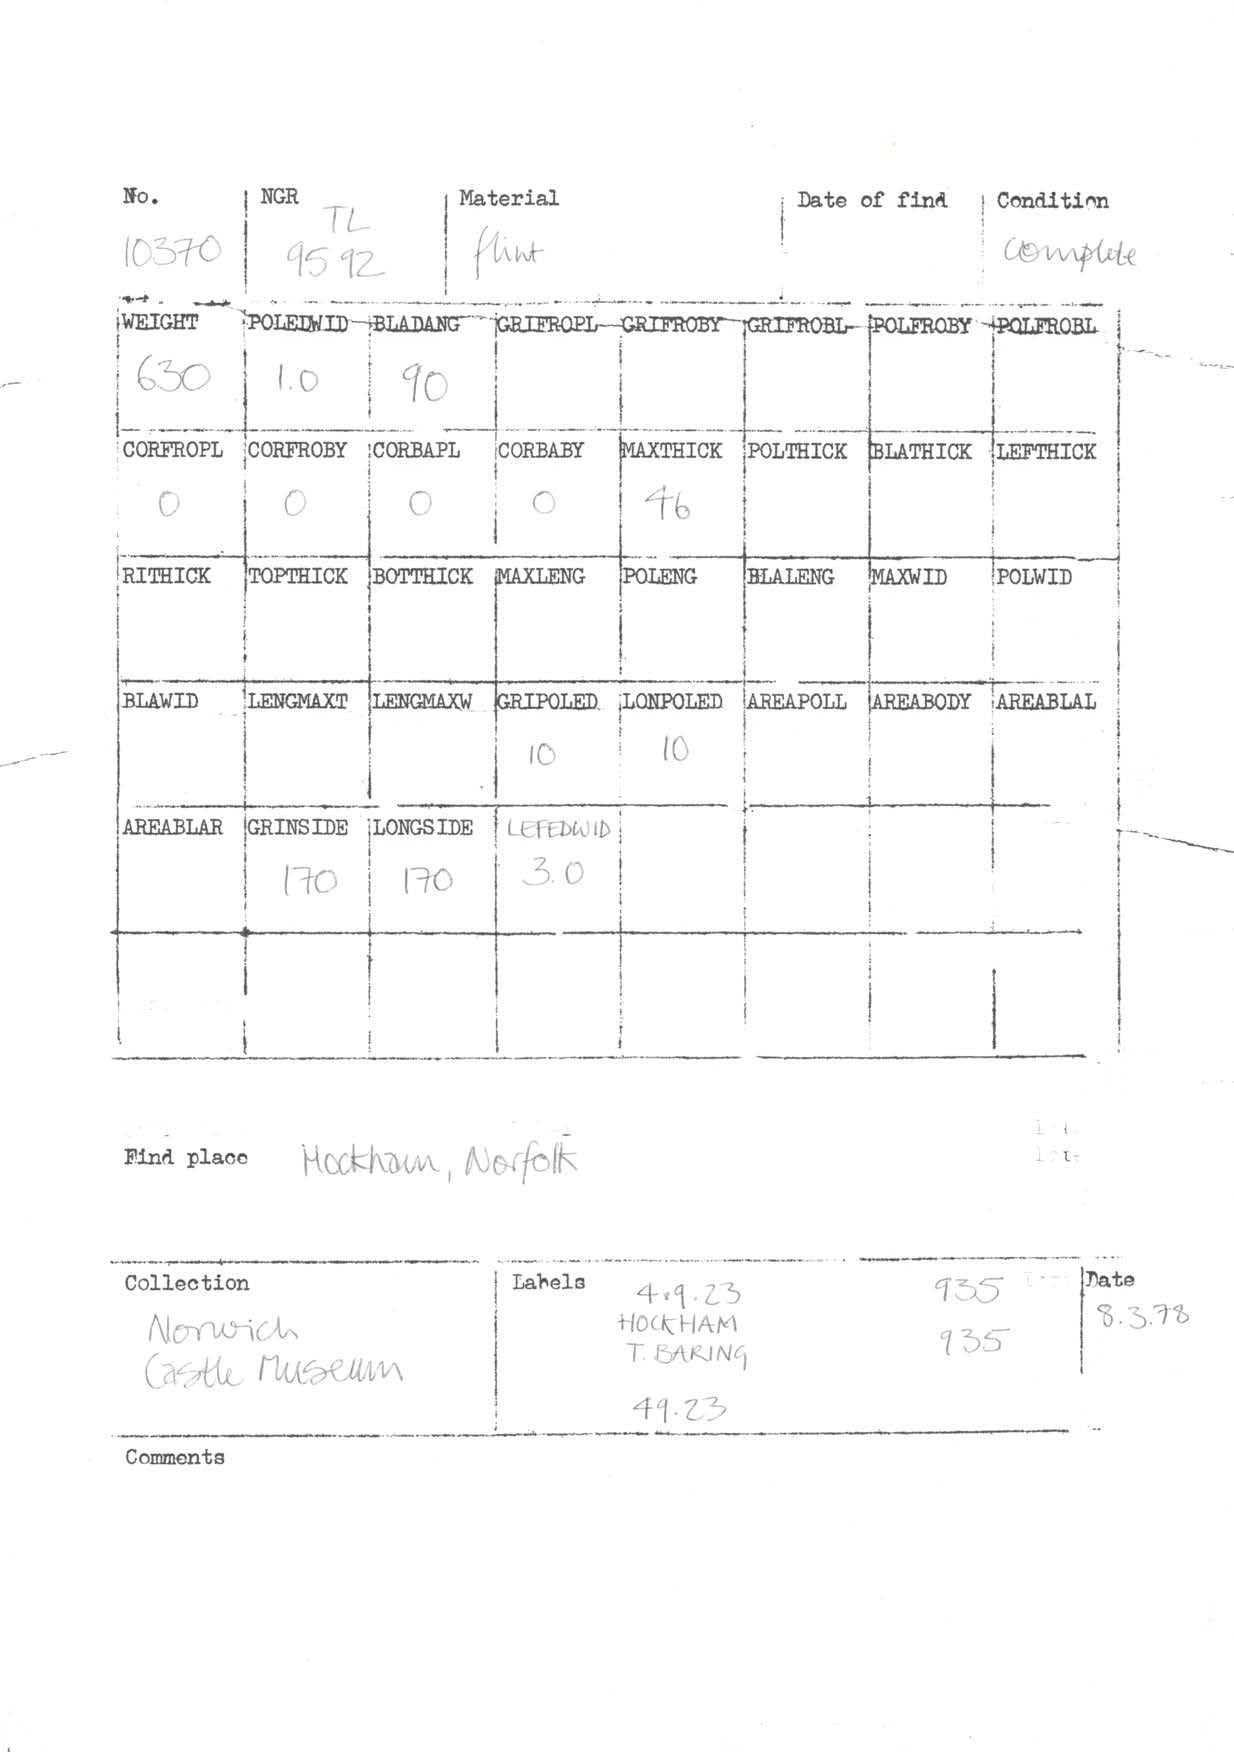 No. NGR Material Date of find Condition
TL
10370 95 92 flint complete
WEIGHT POLEDWID BLADANG GRIFROPL GRIFROBY GRIFROBL POLFROBY POLFROBL
630 1.0 90
CORFROPL CORFROBY CORBAPL CORBABY MAXTHICK POLTHICK BLATHICK LEFTHICK
0 0 0 0 46
RITHICK TOPTHICK BOTTHICK MAXLENG POLENG BLALENG MAXWID POLWID
BLAWID LENGMAXT LENGMAXW GRIPOLED LONPOLED AREAPOLL AREABODY AREABLAL
10 10
AREABLAR GRINSIDE LONGSIDE LEFEDWID
170 170 3.0
Find place Hockham, Norfolk
Collection Labels 4.9.23 935 Date
Norwich HOCKHAM 8.3.78
Castle Museum T. BARING 935
49.23
Comments